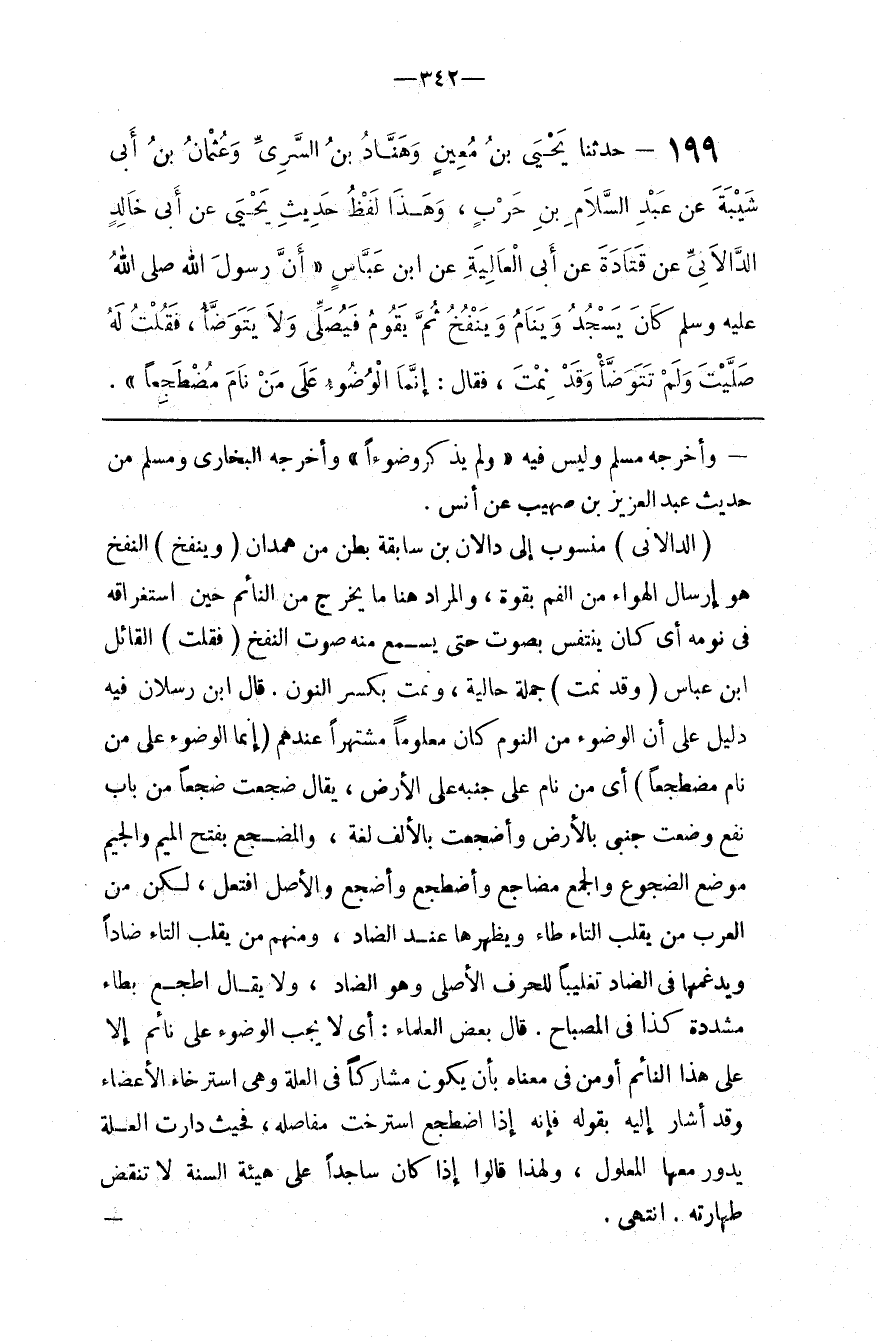 —٣٤٢—
١٩٩ — حدثنا يَحْيَى بنُ مُعِينٍ وَهَنَّادُ بنُ السَّرِىِّ وَعُثْمَانُ بنُ أَبى
شَيْبَةَ عن عَبْدِ السَّلاَمِ بنِ حَرْبٍ ، وَهَـذَا لَفْظُ حَدِيثِ يَحْيَى عن أَبى خَالِدٍ
الدَّالاَنِىِّ عن قَتَادَةَ عن أَبى الْعَالِيَةِ عن ابن عَبَّاسٍ « أَنَّ رسولَ الله صلى اللهُ
عليه وسلم كَانَ يَسْجُدُ وَيَنَامُ وَيَنْفُخُ ثُمَّ يَقُومُ فَيُصَلِّى وَلاَ يَتَوَضَّأُ ، فَقُلْتُ لَهُ
صَلَّيْتَ وَلَمْ تَتَوَضَّأْ وَقَدْ نِمْتَ ، فقال : إِنَّمَا الْوُضُوءُ عَلَى مَنْ نَامَ مُضْطَجِعاً » .
— وأخرجه مسلم وليس فيه « ولم يذكر وضوءاً » وأخرجه البخارى ومسلم من
حديث عبد العزيز بن صهيب عن أنس .
( الدالانى ) منسوب إلى دالان بن سابقة بطن من همدان ( وينفخ ) النفخ
هو إرسال الهواء من الفم بقوة ، والمراد هنا ما يخرج من النائم حين استغراقه
فى نومه أى كان يتنفس بصوت حتى يسـمع منه صوت النفخ ( فقلت ) القائل
ابن عباس ( وقد نمت ) جملة حالية ، ونمت بكسر النون . قال ابن رسلان فيه
دليل على أن الوضوء من النوم كان معلوماً مشتهراً عندهم ( إنما الوضوء على من
نام مضطجعاً ) أى من نام على جنبه على الأرض ، يقال ضجعت ضجعاً من باب
نفع وضعت جنبى بالأرض وأضجعت بالألف لغة ، والمضـجع بفتح الميم والجيم
موضع الضجوع والجمع مضاجع وأضطجع وأضجع والأصل افتعل ، لـكن من
العرب من يقلب التاء طاء ويظهرها عنـد الضاد ، ومنهم من يقلب التاء ضاداً
ويدغمها فى الضاد تغليباً للحرف الأصلى وهو الضاد ، ولا يقـال اطجـع بطاء
مشددة كذا فى المصباح . قال بعض العلماء : أى لا يجب الوضوء على نائم إلا
على هذا النائم أو من فى معناه بأن يكون مشاركاً فى العلة وهى استرخاء الأعضاء
وقد أشار إليه بقوله فإنه إذا اضطجع استرخت مفاصله ، فحيث دارت العـلة
يدور معها المعلول ، ولهذا قالوا إذا كان ساجداً على هيئة السنة لا تنقض
طهارته . انتهى . —